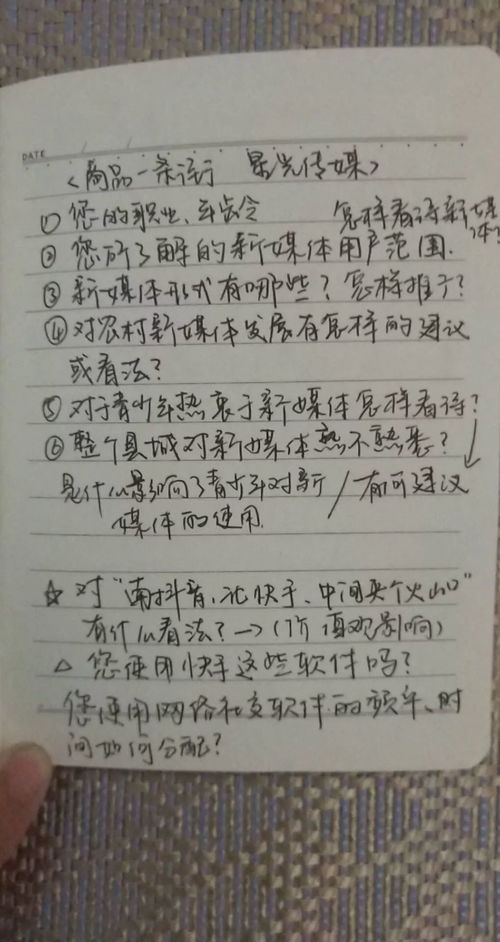 DATE
<商品一条街 星光传媒>
① 您的职业、年龄 怎样看待新媒体?
② 您所了解的新媒体用户范围.
③ 新媒体形式有哪些? 怎样推广?
④ 对农村新媒体发展有怎样的建议
或看法?
⑤ 对于青少年热衷于新媒体怎样看待?
⑥ 整个县城对新媒体熟不熟悉?
是什么影响了青少年对新 / 有何建议
媒体的使用.
☆ 对“南抖音,北快手、中间夹个火山口”
有什么看法? →(价值观影响)
△ 您使用快手这些软件吗?
您使用网络社交软件的频率、时
间如何分配?